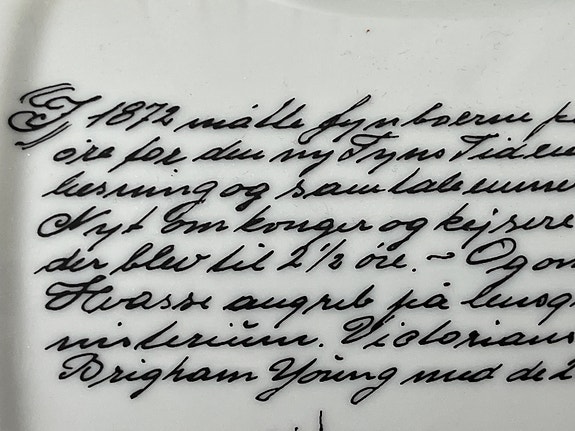 I 1872 måtte fynboerne p
øre for den ny Fyns Tiden
læsning og samtaleemne
Nyt om konger og kejsere
der blev til 2 1/2 øre. ~ Og om
Hvasse angreb på lensg
nisteriŭm. Victorians
Brigham Yoŭng med de 2